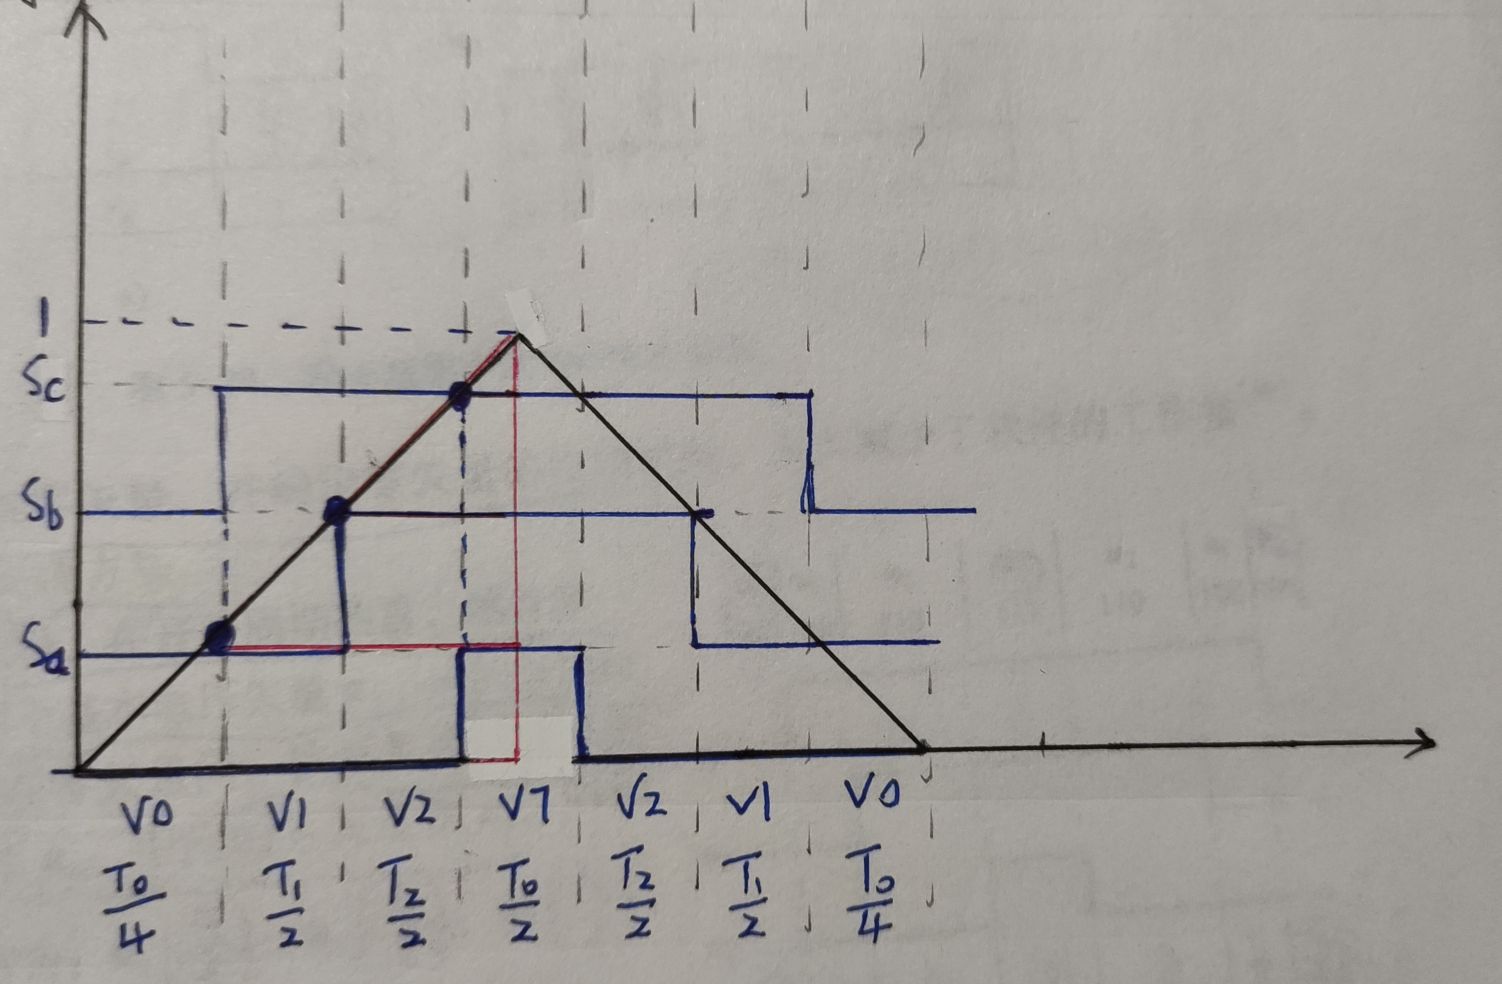 1
Sc
Sb
Sa
V0 V1 V2 V7 V2 V1 V0
T0/4 T1/2 T2/2 T0/2 T2/2 T1/2 T0/4